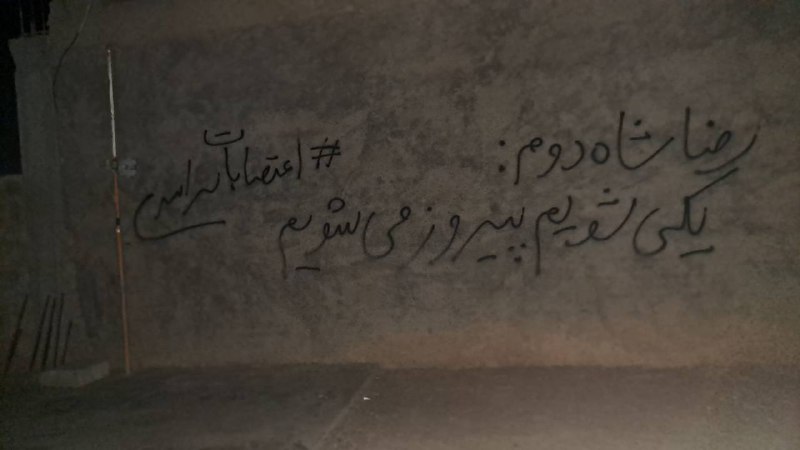 رضا شاه دوم:
یکی شویم پیروز می شویم
#اعتصابات_سراسری